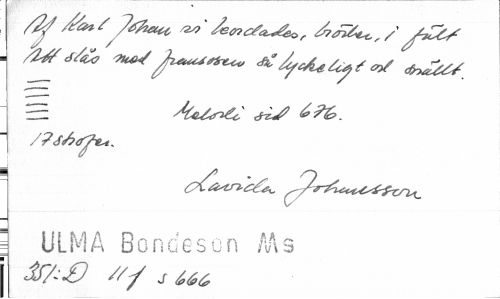 Af Karl Johan vi leordades, bröder, i fält
Att slås med fransosen så lyckeligt och snällt.
Melodi sid 676.
17 strofer.
Lavida Johansson
ULMA Bondeson Ms
351:D 11f s 666